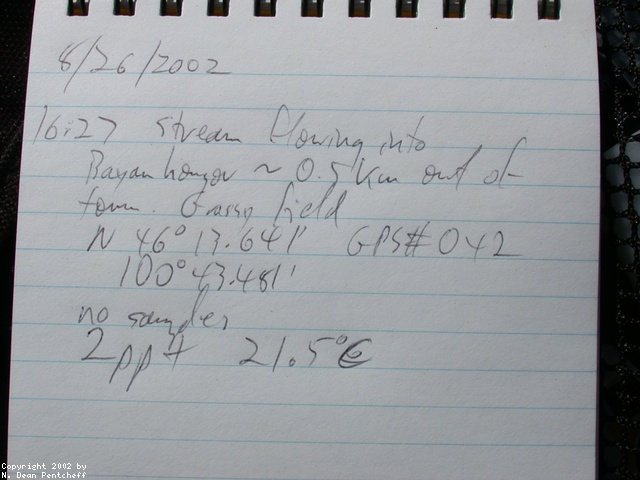 8/26/2002
16:27 stream flowing into
Bayanhongor ~ 0.5 km out of
town. Grassy field
N 46° 13.641' GPS# 042
100° 43.481'
no samples
2ppt 21.5°C
Copyright 2002 by
N. Dean Pentcheff